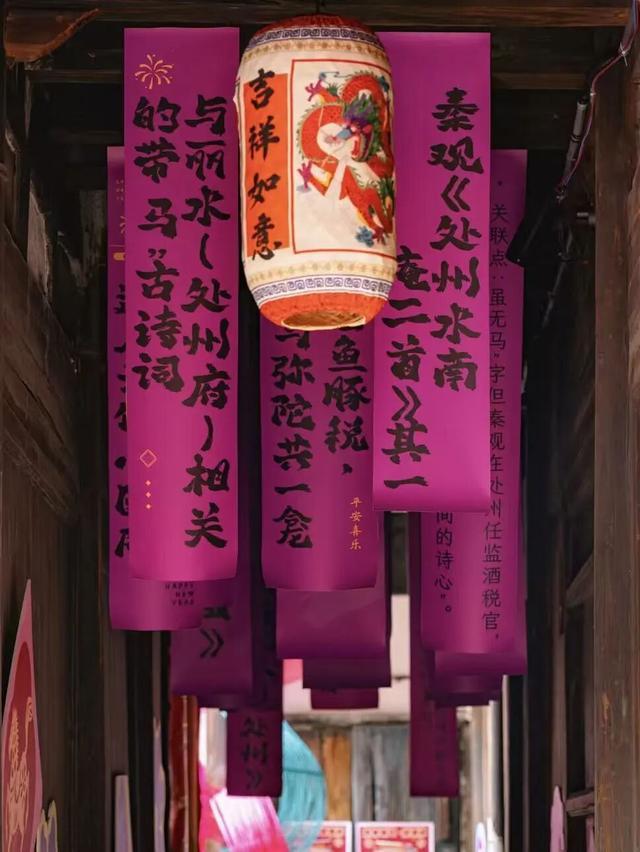 与丽水（处州府）相关
的带 马”古诗词
吉祥如意
秦观《处州水南
庵二首》其一
·关联点：虽无马”字但秦观在处州任监酒税官，
间的诗心”。
鱼豚税，
与弥陀共一龛
平安喜乐
HAPPY
NEW
YEAR
处州》